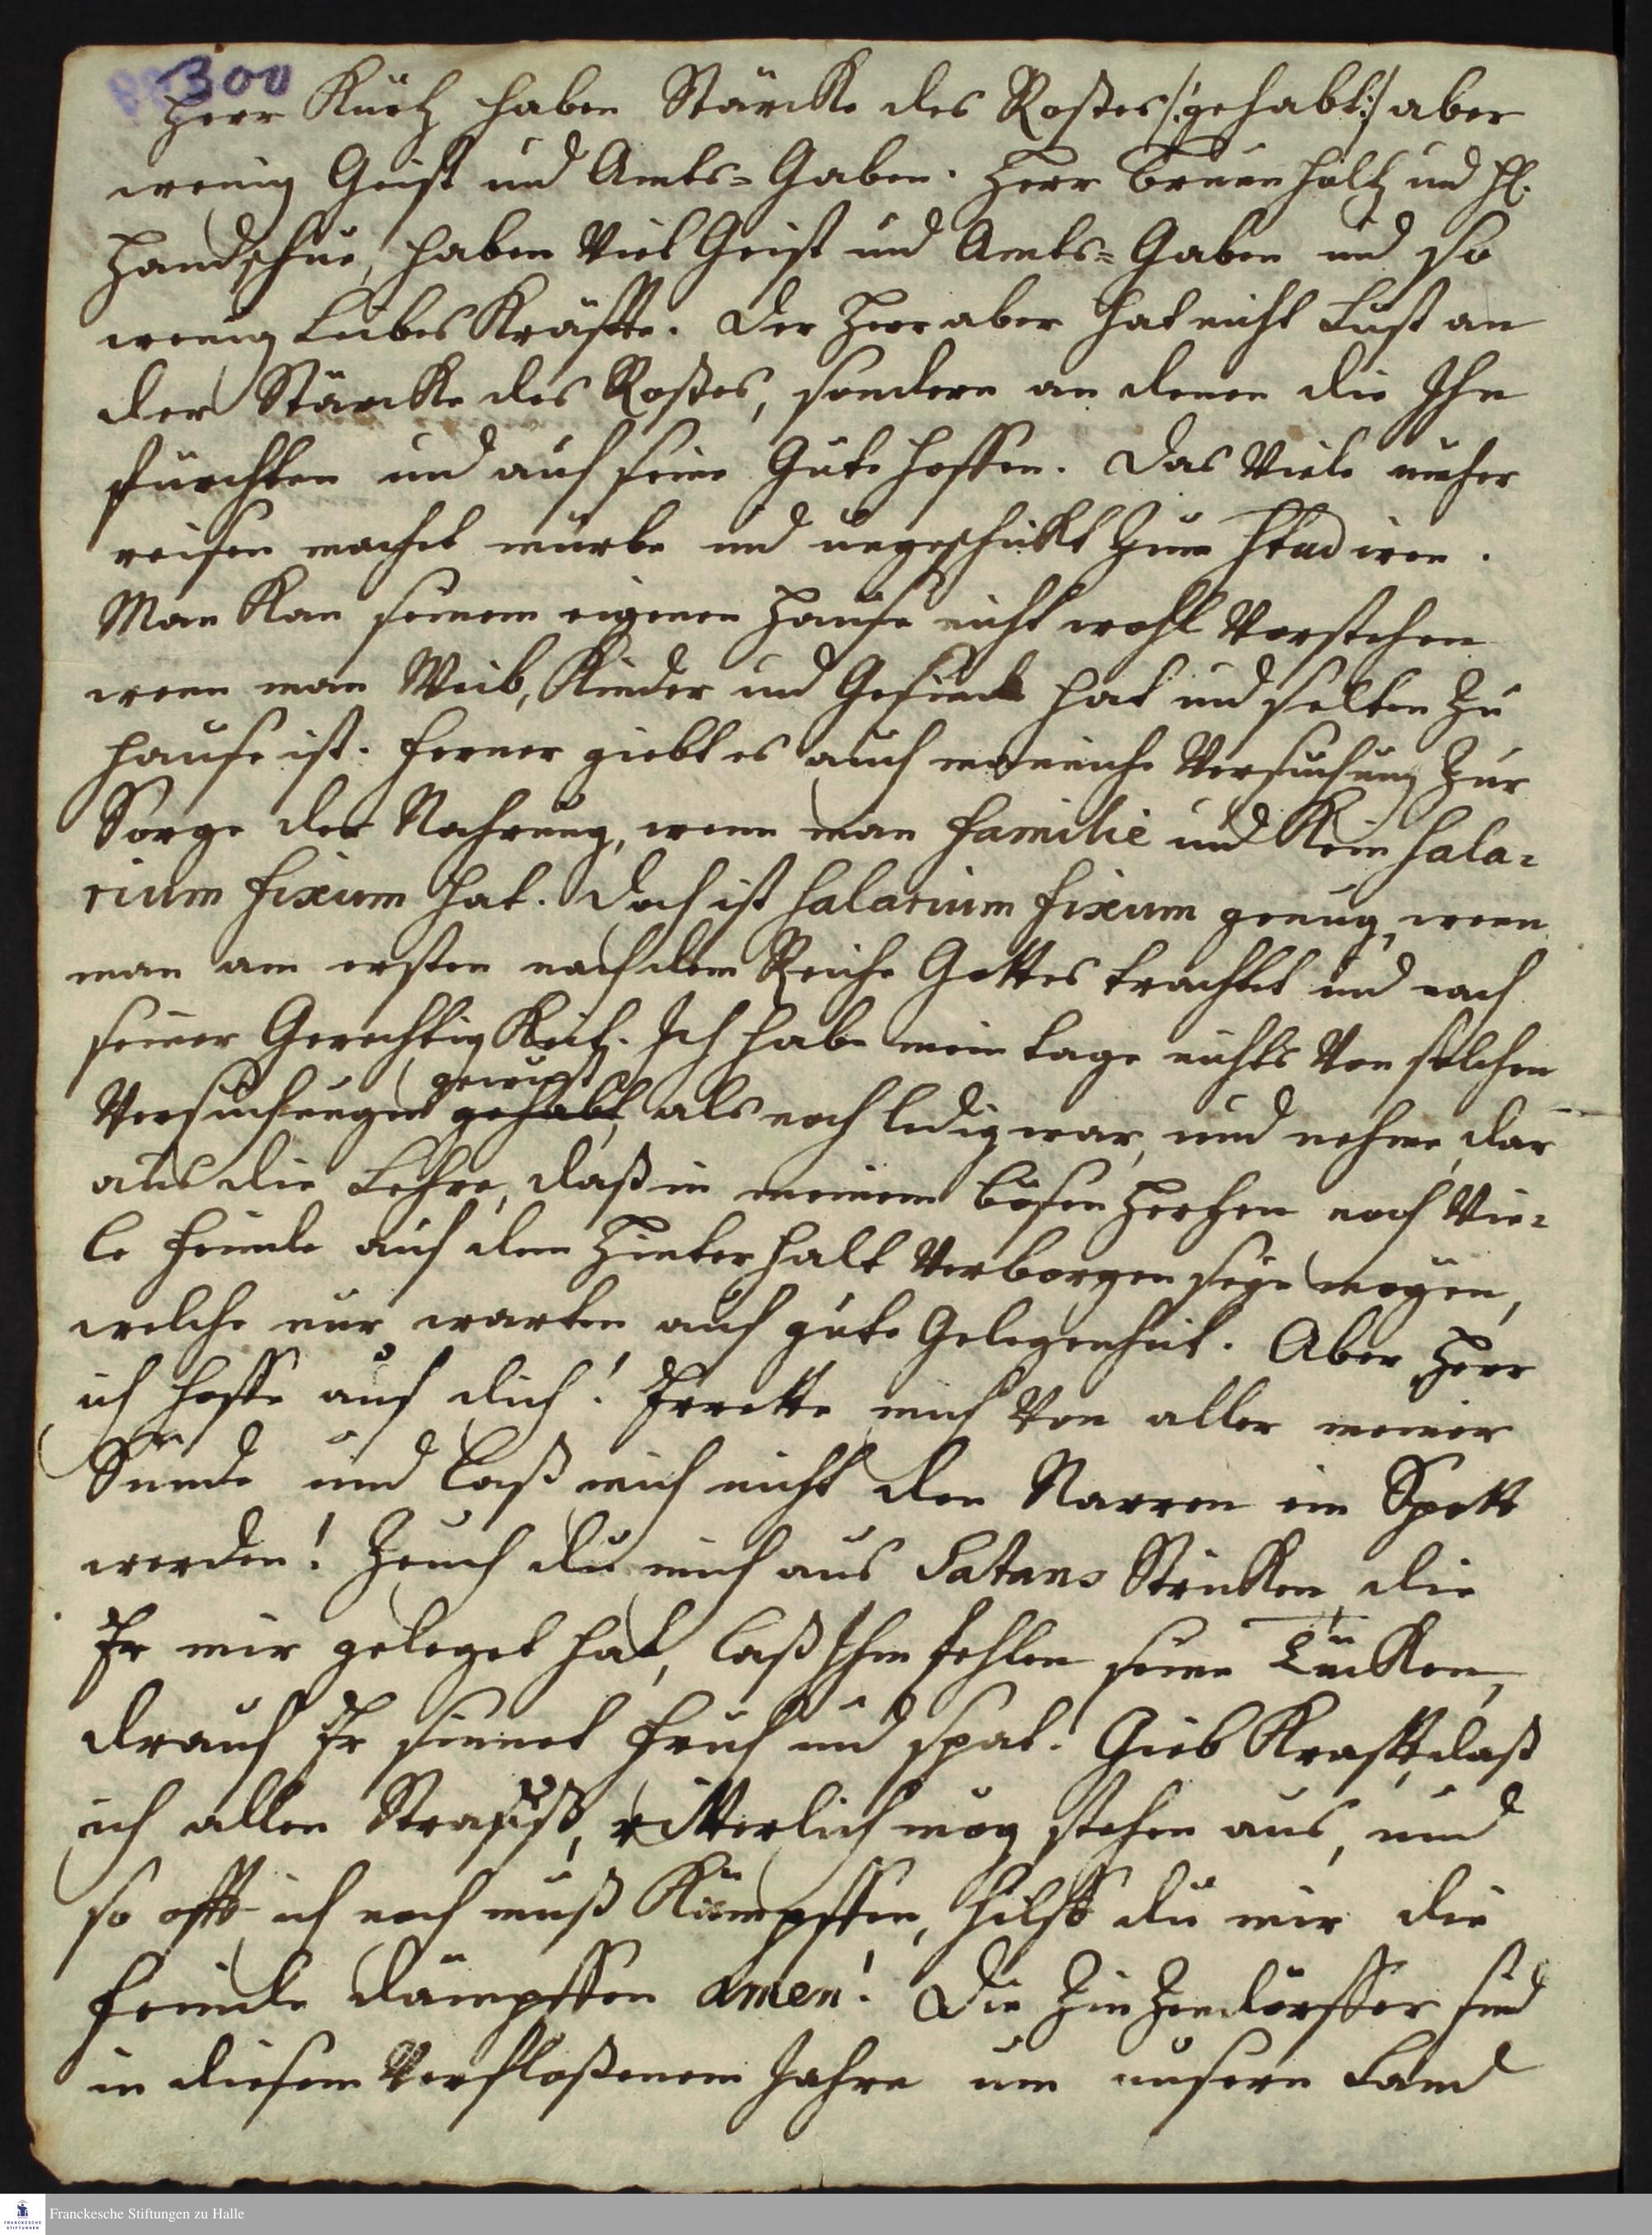 300
Herr Kurtz haben Stärcke des Roßes /:gehabt:/ aber
wenig Geist und Amts=Gaben. Herr Brunnholtz und H.
Handschue, haben Viel Geist und Amts=Gaben und so
wenig Leibes Kräffte. Der Herr aber hat nicht Lust an
der Stärcke des Roßes, sondern an denen die Ihn
fürchten und auf seine Güte hoffen. Das Viele umher
reisen machet mürbe und ungeschickt zum Studiren.
Man kan seinem eigenen Hause nicht wohl Vorstehen
wenn man Weib, Kinder und Gesinde hat und selten zu
Hause ist. Ferner giebt es auch manniche Versuchung zur
Sorge der Nahrung, wenn man Familie und kein Sala=
rium fixum hat. Doch ist Salarium fixum genug, wenn
man am ersten nach dem Reiche Gottes trachtet und nach
seiner Gerechtigkeit. Ich habe mein tage nichts Von solchen
gewust
Versuchungen gehabt, als noch ledig war, und nehme dar
aus die Lehre, daß in meinem bösen Hertzen noch Vie=
le Feinde auf dem Hinterhalt Verborgen seyn mögen,
welche nur warten auf gute Gelegenheit. Aber Herr
ich hoffe auf dich! Errette mich Von aller meiner
Sünde und laß mich nicht den Narren ein Spott
werden! Zeuch du mich aus Satans Stricken die
Er mir geleget hat, laß Ihm fehlen seine Tücken,
drauf Er sinnet früh und spat. Gieb Krafft, daß
ich allen Strauß, ritterlich mög stehen aus, und
so offt ich noch muß Kämpffen, hilff du mir die
Feinde dämpffen Amen! Die Zinzendörffer sind
in diesem Verfloßenem Jahre um unsern Land
Franckesche Stiftungen zu Halle